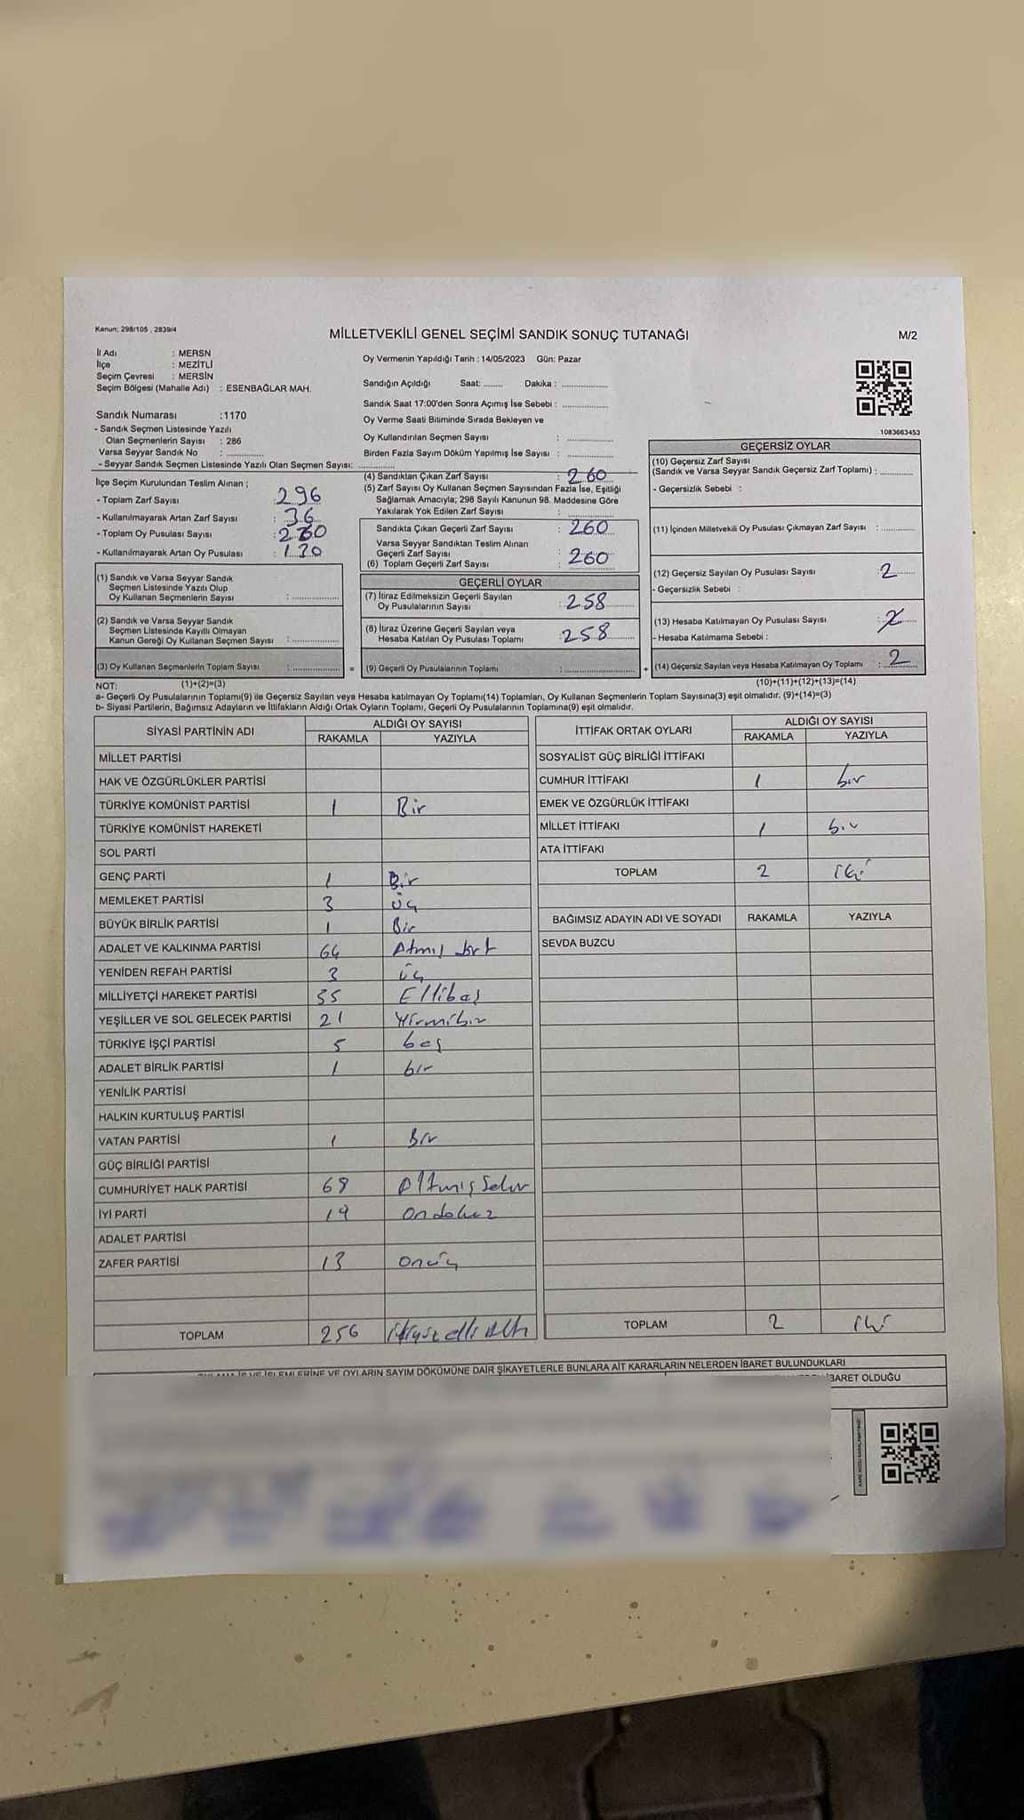 Kanun: 298/105 , 2839/4
MİLLETVEKİLİ GENEL SEÇİMİ SANDIK SONUÇ TUTANAĞI
M/2
İl Adı : MERSN
İlçe : MEZİTLİ
Seçim Çevresi : MERSİN
Seçim Bölgesi (Mahalle Adı) : ESENBAĞLAR MAH.
Sandık Numarası :1170
- Sandık Seçmen Listesinde Yazılı
Olan Seçmenlerin Sayısı : 286
Varsa Seyyar Sandık No :
- Seyyar Sandık Seçmen Listesinde Yazılı Olan Seçmen Sayısı:
Oy Vermenin Yapıldığı Tarih : 14/05/2023 Gün: Pazar
Sandığın Açıldığı Saat: Dakika :
Sandık Saat 17:00'den Sonra Açımış İse Sebebi :
Oy Verme Saati Bitiminde Sırada Bekleyen ve
Oy Kullandırılan Seçmen Sayısı :
Birden Fazla Sayım Döküm Yapılmış İse Sayısı :
1083663453
İlçe Seçim Kurulundan Teslim Alınan ;
- Toplam Zarf Sayısı : 296
- Kullanılmayarak Artan Zarf Sayısı : 36
- Toplam Oy Pusulası Sayısı :
- Kullanılmayarak Artan Oy Pusulası :
(1) Sandık ve Varsa Seyyar Sandık
Seçmen Listesinde Yazılı Olup
Oy Kullanan Seçmenlerin Sayısı :
(2) Sandık ve Varsa Seyyar Sandık
Seçmen Listesinde Kayıllı Olmayan
Kanun Gereği Oy Kullanan Seçmen Sayısı :
(3) Oy Kullanan Seçmenlerin Toplam Sayısı :
(1)+(2)=(3)
(4) Sandıktan Çıkan Zarf Sayısı : 260
(5) Zarf Sayısı Oy Kullanan Seçmen Sayısından Fazla İse, Eşitliği
Sağlamak Amacıyla; 298 Sayılı Kanunun 98. Maddesine Göre
Yakılarak Yok Edilen Zarf Sayısı :
Sandıkta Çıkan Geçerli Zarf Sayısı : 260
Varsa Seyyar Sandıktan Teslim Alınan
Geçerli Zarf Sayısı
(6) Toplam Geçerli Zarf Sayısı : 260
GEÇERLİ OYLAR
(7) İtiraz Edilmeksizin Geçerli Sayılan
Oy Pusulalarının Sayısı : 258
(8) İtiraz Üzerine Geçerli Sayılan veya
Hesaba Katılan Oy Pusulası Toplamı : 258
= (9) Geçerli Oy Pusulalarının Toplamı :
GEÇERSİZ OYLAR
(10) Geçersiz Zarf Sayısı
(Sandık ve Varsa Seyyar Sandık Geçersiz Zarf Toplamı) :
- Geçersizlik Sebebi :
(11) İçinden Milletvekili Oy Pusulası Çıkmayan Zarf Sayısı :
(12) Geçersiz Sayılan Oy Pusulası Sayısı : 2
- Geçersizlik Sebebi :
(13) Hesaba Katılmayan Oy Pusulası Sayısı :
- Hesaba Katılmama Sebebi :
+ (14) Geçersiz Sayılan veya Hesaba Katılmayan Oy Toplamı : 2
(10)+(11)+(12)+(13)=(14)
NOT:
a- Geçerli Oy Pusulalarının Toplamı(9) ile Geçersiz Sayılan veya Hesaba katılmayan Oy Toplamı(14) Toplamları, Oy Kullanan Seçmenlerin Toplam Sayısına(3) eşit olmalıdır. (9)+(14)=(3)
b- Siyasi Partilerin, Bağımsız Adayların ve İttifakların Aldığı Ortak Oyların Toplamı, Geçerli Oy Pusulalarının Toplamına(9) eşit olmalıdır.
SİYASİ PARTİNİN ADI ALDIĞI OY SAYISI
RAKAMLA YAZIYLA
MİLLET PARTİSİ
HAK VE ÖZGÜRLÜKLER PARTİSİ
TÜRKİYE KOMÜNİST PARTİSİ 1 Bir
TÜRKİYE KOMÜNİST HAREKETİ
SOL PARTİ
GENÇ PARTİ 1 Bir
MEMLEKET PARTİSİ 3 üç
BÜYÜK BİRLİK PARTİSİ 1 Bir
ADALET VE KALKINMA PARTİSİ 64 Atmış dört
YENİDEN REFAH PARTİSİ 3 üç
MİLLİYETÇİ HAREKET PARTİSİ 55 Ellibeş
YEŞİLLER VE SOL GELECEK PARTİSİ 21 Yirmibir
TÜRKİYE İŞÇİ PARTİSİ 5 beş
ADALET BİRLİK PARTİSİ 1 bir
YENİLİK PARTİSİ
HALKIN KURTULUŞ PARTİSİ
VATAN PARTİSİ 1 Bir
GÜÇ BİRLİĞİ PARTİSİ
CUMHURİYET HALK PARTİSİ 68
İYİ PARTİ 19 Ondokuz
ADALET PARTİSİ
ZAFER PARTİSİ 13 Onüç
TOPLAM 256 ikiyüz elli Altı
İTTİFAK ORTAK OYLARI ALDIĞI OY SAYISI
RAKAMLA YAZIYLA
SOSYALİST GÜÇ BİRLİĞİ İTTİFAKI
CUMHUR İTTİFAKI 1 bir
EMEK VE ÖZGÜRLÜK İTTİFAKI
MİLLET İTTİFAKI 1 bir
ATA İTTİFAKI
TOPLAM 2 iki
BAĞIMSIZ ADAYIN ADI VE SOYADI RAKAMLA YAZIYLA
SEVDA BUZCU
TOPLAM 2 iki
SAYIM DÖKÜMÜNE DAİR ŞİKAYETLERLE BUNLARA AİT KARARLARIN NELERDEN İBARET BULUNDUKLARI
İBARET OLDUĞU